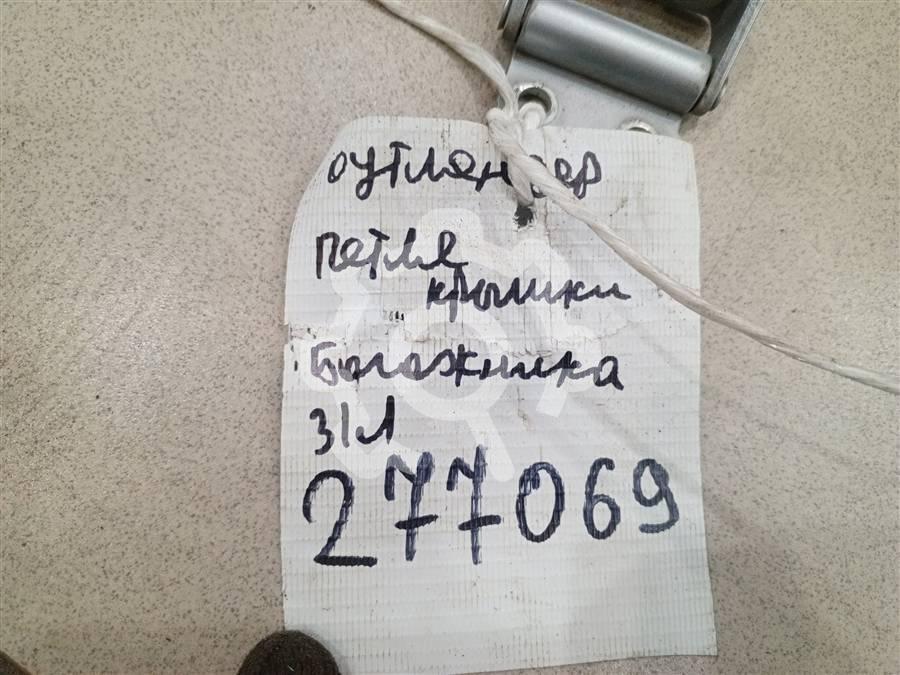 оутлендер
петля
крышки
Багажника
З/Л
277069